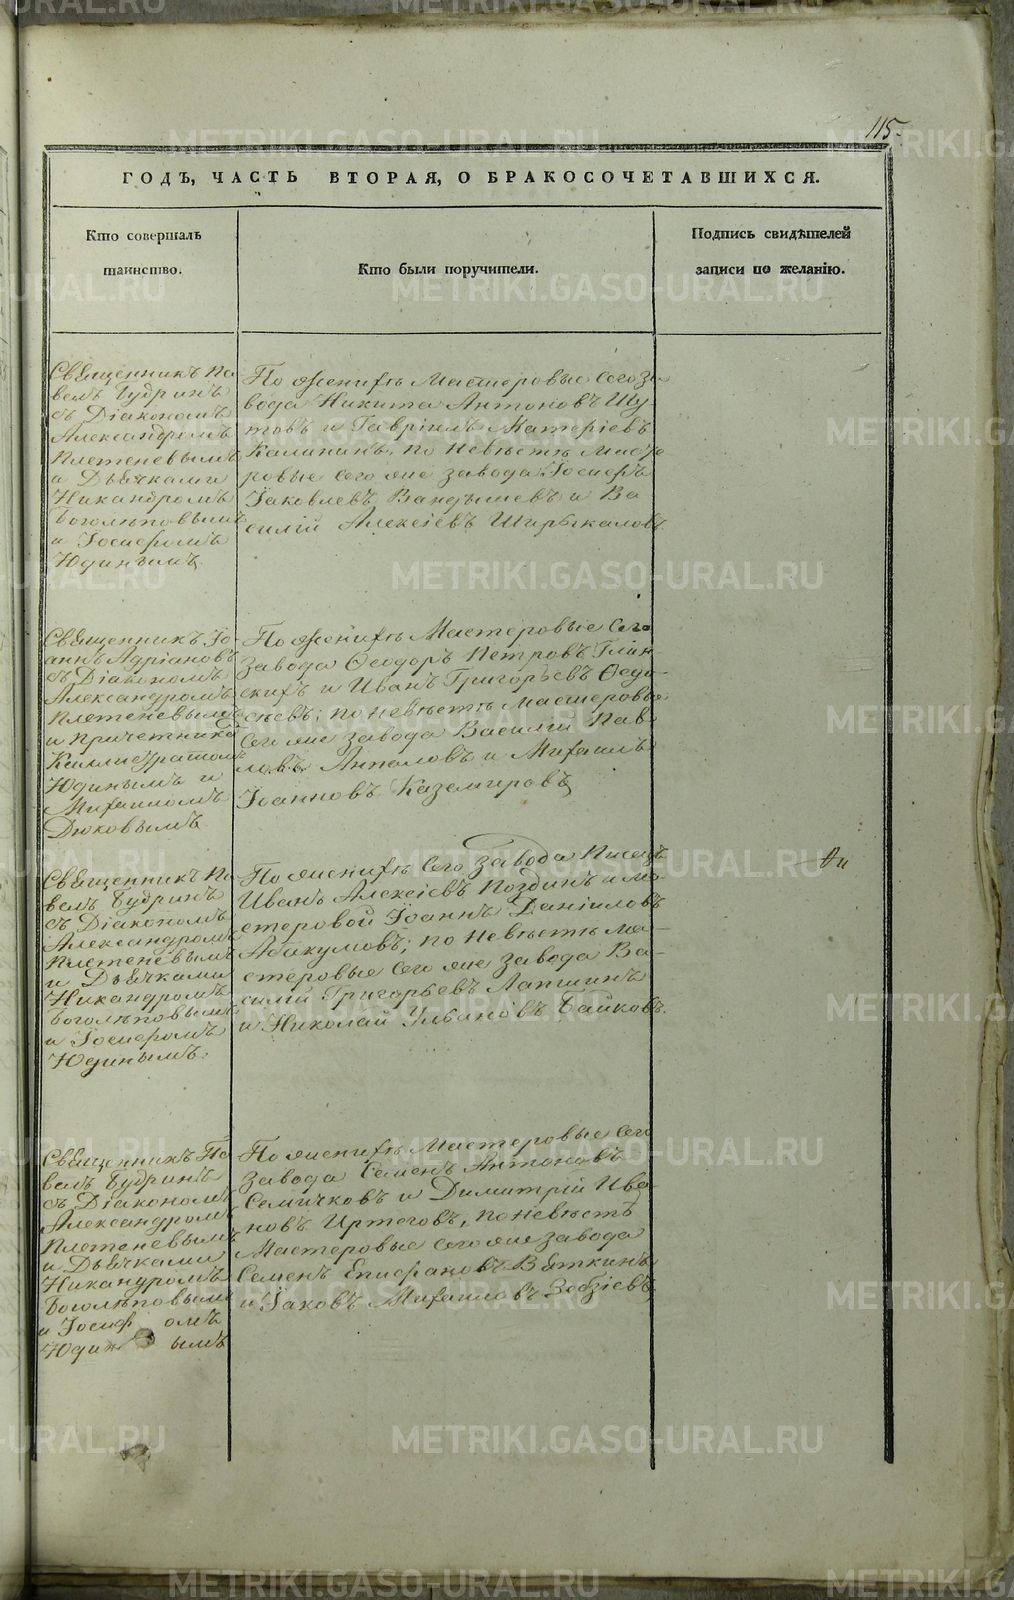 115.
ГОДЪ, ЧАСТЬ ВТОРАЯ, О БРАКОСОЧЕТАВШИХСЯ.
Кто совершалъ
таинство.
Кто были поручители.
Подпись свидѣтелей
записи по желанію.
Священникъ Па
велъ Будринъ
съ Діакономъ
Александромъ
Плетеневымъ
и Дьячками
Никандромъ
Боголѣповымъ
и Іосифомъ
Юдинымъ.
По женихѣ Мастеровые сего за
вода Никита Антоновъ Шу
товъ и Гавріилъ Матѳіевъ
Калининъ; по невѣстѣ Масте
ровые сего же завода Іосифъ
Іаковлевъ Вандышевъ и Ва
силій Алексіевъ Ширыкаловъ
Священникъ Іо
аннъ Адріановъ
съ Діакономъ
Александромъ
Плетеневымъ
и причетники
Каллистратомъ
Юдинымъ и
Михаиломъ
Дюковымъ
По женихѣ Мастеровые сего
завода Ѳеодоръ Петровъ Глин
скихъ и Иванъ Григорьевъ Ѳедо
сѣевъ; по невѣстѣ Мастеровые
сего же завода Василій Пав
ловъ и Михаилъ
Іоанновъ Каземировъ
Священникъ Па
велъ Будринъ
съ Діакономъ
Александромъ
Плетеневымъ
и Дьячками
Никандромъ
Боголѣповымъ
и Іосифомъ
Юдинымъ.
По женихѣ сего завода Писецъ
Иванъ Алексіевъ Поздинъ и ма
стеровой Іоаннъ Даніиловъ
Абакумовъ; по невѣстѣ Ма-
стеровые сего же завода Ва-
силій Григорьевъ Лапшинъ
и Николай Ульяновъ Байковъ.
Священникъ Па
велъ Будринъ
съ Діакономъ
Александромъ
Плетеневымъ
и Дьячками
Никандромъ
Боголѣповымъ
и Іосифомъ
Юдинымъ
По женихѣ Мастеровые сего
завода Семенъ Антоновъ
Семичковъ и Димитрій Ива
новъ Иртеговъ, по невѣстѣ
Мастеровые сего же завода
Семенъ Епифановъ Вяткинъ
и Іаковъ Михаиловъ
METRIKI.GASO-URAL.RU